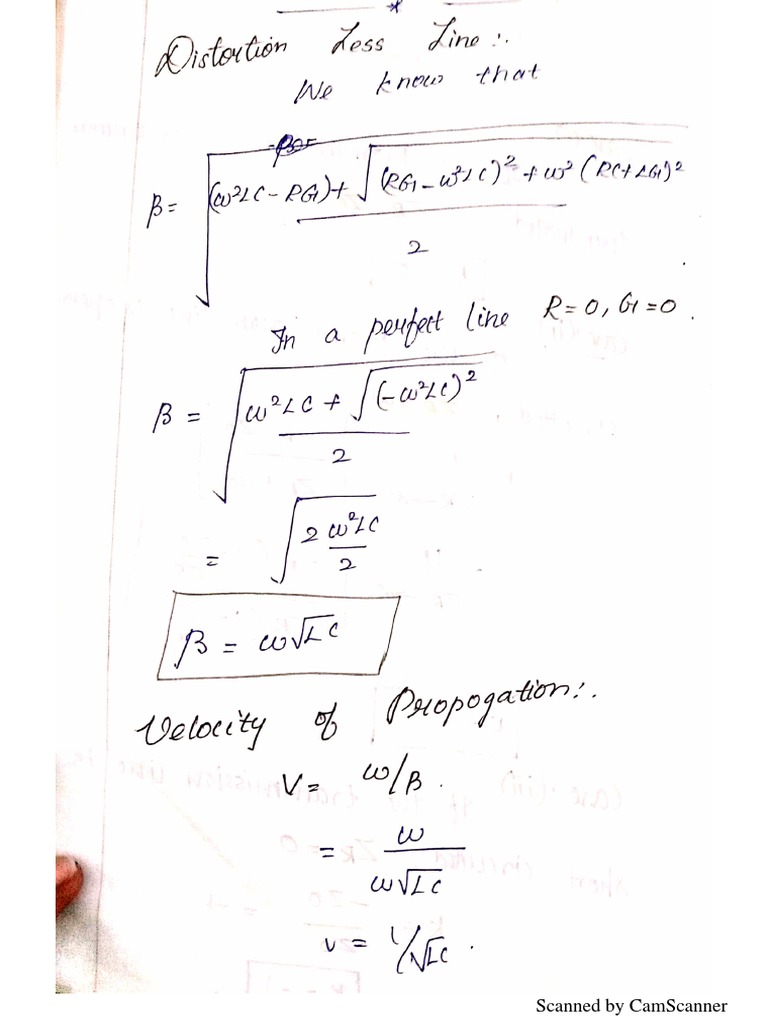 Distortion Less Line:.
We know that
β = √((ω²LC - RG) + √((RG - ω²LC)² + ω²(RC + LG)²) / 2)
In a perfect line R=0, G=0.
β = √((ω²LC + √((-ω²LC)²)) / 2)
= √(2 ω²LC / 2)
β = ω√LC
Velocity of Propogation:.
V = ω/β.
= ω / ω√LC
v = 1/√LC.
Scanned by CamScanner